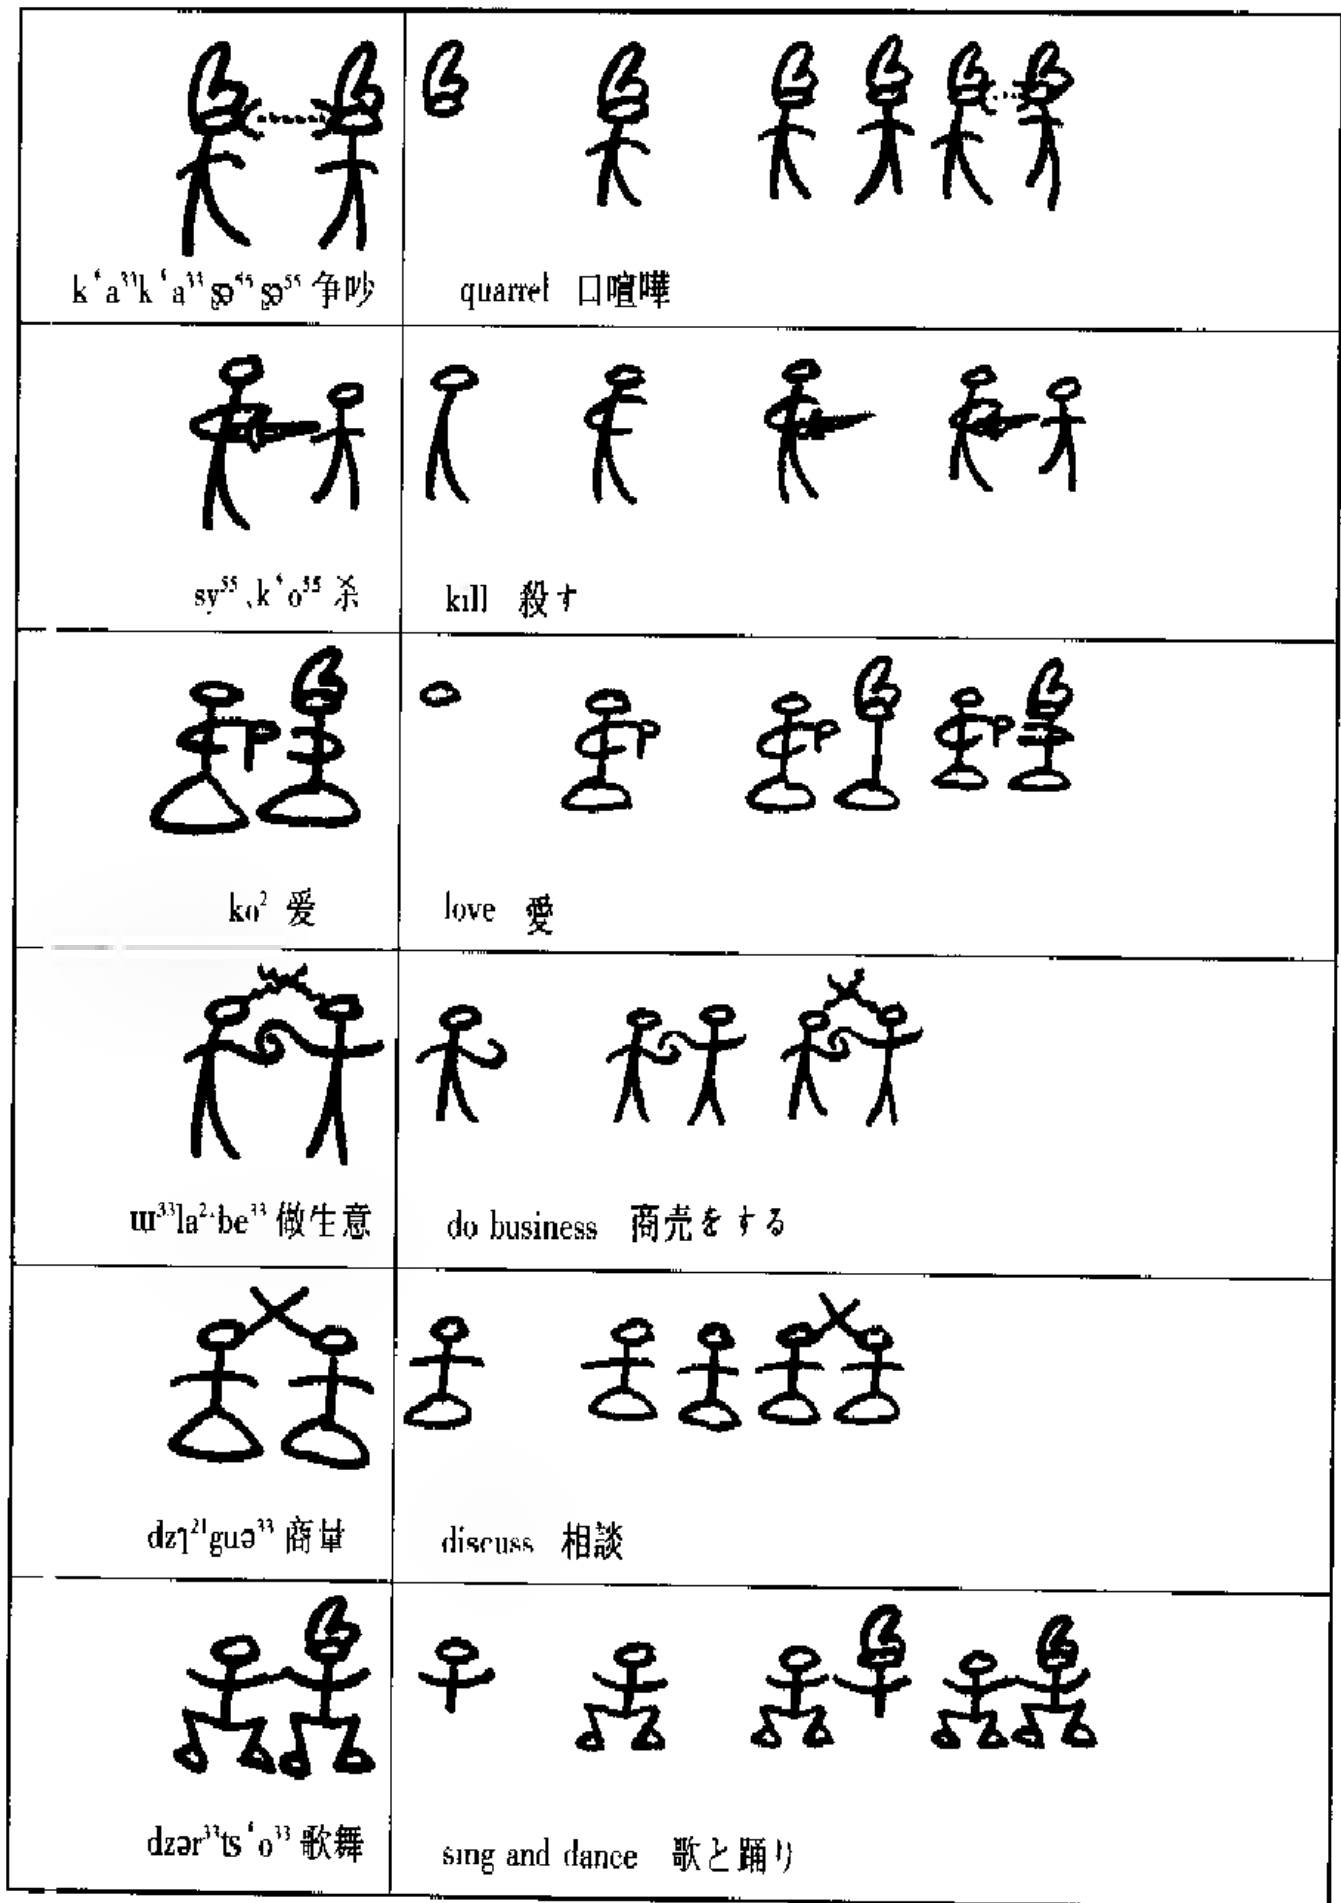 k‘a³³k‘a³³ʂə⁵⁵ʂə⁵⁵ 争吵
quarrel 口喧嘩
sy⁵⁵、k‘o⁵⁵ 杀
kill 殺す
ko² 爱
love 愛
ɯ³³la²¹be³³ 做生意
do business 商売をする
dzɿ²¹guə³³ 商量
discuss 相談
dzər³³ts‘o³³ 歌舞
sing and dance 歌と踊り